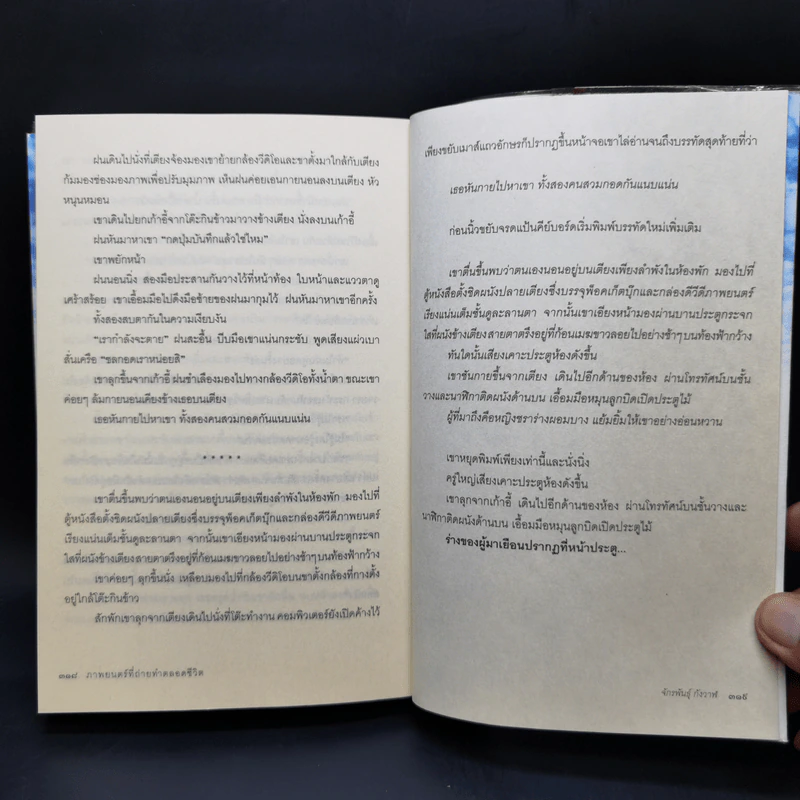 ฝนเดินไปนั่งที่เตียงจ้องมองเขาย้ายกล้องวีดิโอและขาตั้งมาใกล้กับเตียง
ก้มมองช่องมองภาพเพื่อปรับมุมภาพ เห็นฝนค่อยเอนกายนอนลงบนเตียง หัว
หนุนหมอน
เขาเดินไปยกเก้าอี้จากโต๊ะกินข้าวมาวางข้างเตียง นั่งลงบนเก้าอี้
ฝนหันมาหาเขา “กดปุ่มบันทึกแล้วใช่ไหม”
เขาพยักหน้า
ฝนนอนนิ่ง สองมือประสานกันวางไว้ที่หน้าท้อง ใบหน้าและแววตาดู
เศร้าสร้อย เขาเอื้อมมือไปดึงมือซ้ายของฝนมากุมไว้ ฝนหันมาหาเขาอีกครั้ง
ทั้งสองสบตากันในความเงียบงัน
“เรากำลังจะตาย” ฝนสะอื้น บีบมือเขาแน่นกระชับ พูดเสียงแผ่วเบา
สั่นเครือ “ชลกอดเราหน่อยสิ”
เขาลุกขึ้นจากเก้าอี้ ฝนชำเลืองมองไปทางกล้องวีดิโอทั้งน้ำตา ขณะเขา
ค่อยๆ ล้มกายนอนเคียงข้างเธอบนเตียง
เธอหันกายไปหาเขา ทั้งสองคนสวมกอดกันแนบแน่น
*****
เขาตื่นขึ้นพบว่าตนเองนอนอยู่บนเตียงเพียงลำพังในห้องพัก มองไปที่
ตู้หนังสือตั้งชิดผนังปลายเตียงซึ่งบรรจุพ็อคเก็ตบุ๊กและกล่องดีวีดีภาพยนตร์
เรียงแน่นเต็มชั้นดูละลานตา จากนั้นเขาเอียงหน้ามองผ่านบานประตูกระจก
ใสที่ผนังข้างเตียงสายตาตรึงอยู่ที่ก้อนเมฆขาวลอยไปอย่างช้าๆ บนท้องฟ้ากว้าง
เขาค่อยๆ ลุกขึ้นนั่ง เหลือบมองไปที่กล้องวีดิโอบนขาตั้งกล้องที่กางตั้ง
อยู่ใกล้โต๊ะกินข้าว
สักพักเขาลุกจากเตียงเดินไปนั่งที่โต๊ะทำงาน คอมพิวเตอร์ยังเปิดค้างไว้
๓๑๘ ภาพยนตร์ที่ถ่ายทำตลอดชีวิต
เพียงขยับเมาส์แถวอักษรก็ปรากฏขึ้นหน้าจอเขาไล่อ่านจนถึงบรรทัดสุดท้ายที่ว่า
เธอหันกายไปหาเขา ทั้งสองคนสวมกอดกันแนบแน่น
ก่อนนิ้วขยับจรดแป้นคีย์บอร์ดเริ่มพิมพ์บรรทัดใหม่เพิ่มเติม
เขาตื่นขึ้นพบว่าตนเองนอนอยู่บนเตียงเพียงลำพังในห้องพัก มองไปที่
ตู้หนังสือตั้งชิดผนังปลายเตียงซึ่งบรรจุพ็อคเก็ตบุ๊กและกล่องดีวีดีภาพยนตร์
เรียงแน่นเต็มชั้นดูละลานตา จากนั้นเขาเอียงหน้ามองผ่านบานประตูกระจก
ใสที่ผนังข้างเตียงสายตาตรึงอยู่ที่ก้อนเมฆขาวลอยไปอย่างช้าๆ บนท้องฟ้ากว้าง
ทันใดนั้นเสียงเคาะประตูห้องดังขึ้น
เขาชันกายขึ้นจากเตียง เดินไปอีกด้านของห้อง ผ่านโทรทัศน์บนชั้น
วางและนาฬิกาติดผนังด้านบน เอื้อมมือหมุนลูกบิดเปิดประตูไม้
ผู้ที่มาถึงคือหญิงชราร่างผอมบาง แย้มยิ้มให้เขาอย่างอ่อนหวาน
เขาหยุดพิมพ์เพียงเท่านี้และนั่งนิ่ง
ครู่ใหญ่เสียงเคาะประตูห้องดังขึ้น
เขาลุกจากเก้าอี้ เดินไปอีกด้านของห้อง ผ่านโทรทัศน์บนชั้นวางและ
นาฬิกาติดผนังด้านบน เอื้อมมือหมุนลูกบิดเปิดประตูไม้
ร่างของผู้มาเยือนปรากฏที่หน้าประตู...
จักรพันธุ์ กังวาฬ ๓๑๙